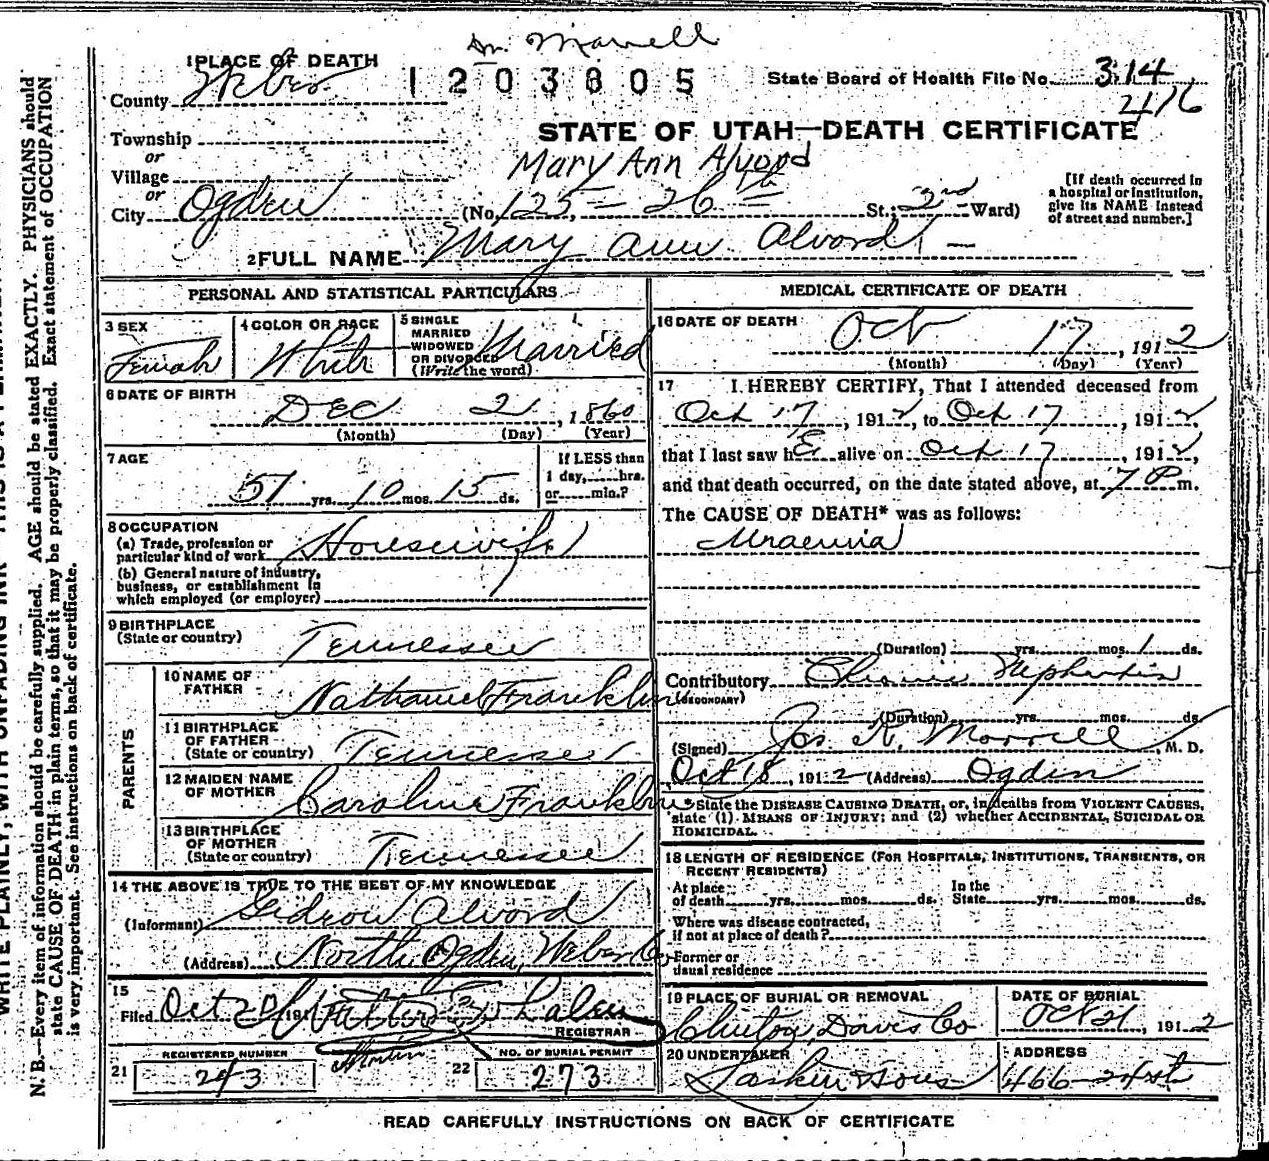 Dr. Morrell
1 PLACE OF DEATH
1203805
State Board of Health File No. 314
416
County Weber
STATE OF UTAH—DEATH CERTIFICATE
Township
or
Mary Ann Alvord
Village
or
City Ogden (No. 125 - 26th St.; 2nd Ward)
[If death occurred in
a hospital or institution,
give its NAME instead
of street and number.]
2 FULL NAME Mary Ann Alvord
PERSONAL AND STATISTICAL PARTICULARS
3 SEX
Female
4 COLOR OR RACE
White
5 SINGLE
MARRIED
WIDOWED
OR DIVORCED
(Write the word)
Married
6 DATE OF BIRTH
Dec 2, 1860
(Month) (Day) (Year)
7 AGE
51 yrs. 10 mos. 15 ds.
If LESS than
1 day, hrs.
or min.?
8 OCCUPATION
(a) Trade, profession or
particular kind of work Housewife
(b) General nature of industry,
business, or establishment in
which employed (or employer)
9 BIRTHPLACE
(State or country) Tennessee
PARENTS
10 NAME OF
FATHER Nathaniel Franklin
11 BIRTHPLACE
OF FATHER
(State or country) Tennessee
12 MAIDEN NAME
OF MOTHER Caroline Franklin
13 BIRTHPLACE
OF MOTHER
(State or country) Tennessee
14 THE ABOVE IS TRUE TO THE BEST OF MY KNOWLEDGE
(Informant) Gideon Alvord
(Address) North Ogden, Weber Co
15
Filed Oct 20 191 Whalen
REGISTRAR
REGISTERED NUMBER
21 243
NO. OF BURIAL PERMIT
22 273
MEDICAL CERTIFICATE OF DEATH
16 DATE OF DEATH
Oct 17, 1912
(Month) (Day) (Year)
17 I HEREBY CERTIFY, That I attended deceased from
Oct 17, 1912, to Oct 17, 1912
that I last saw hE alive on Oct 17, 1912,
and that death occurred, on the date stated above, at 7 P m.
The CAUSE OF DEATH* was as follows:
Uraemia
(Duration) yrs. mos. 1 ds.
Contributory Chronic Nephritis
(SECONDARY)
(Duration) yrs. mos. ds.
(Signed) Jos R. Morrell, M. D.
Oct 18, 1912 (Address) Ogden
* State the DISEASE CAUSING DEATH, or, in deaths from VIOLENT CAUSES,
state (1) MEANS OF INJURY; and (2) whether ACCIDENTAL, SUICIDAL OR
HOMICIDAL.
18 LENGTH OF RESIDENCE (FOR HOSPITALS, INSTITUTIONS, TRANSIENTS, OR
RECENT RESIDENTS)
At place
of death yrs. mos. ds.
In the
State yrs. mos. ds.
Where was disease contracted,
if not at place of death?
Former or
usual residence
19 PLACE OF BURIAL OR REMOVAL
Clinton, Davis Co
DATE OF BURIAL
Oct 21, 1912
20 UNDERTAKER
Larkin & Sons
ADDRESS
466-24 st
READ CAREFULLY INSTRUCTIONS ON BACK OF CERTIFICATE
N. B.—Every item of information should be carefully supplied. AGE should be stated EXACTLY. PHYSICIANS should
state CAUSE OF DEATH in plain terms, so that it may be properly classified. Exact statement of OCCUPATION
is very important. See instructions on back of certificate.